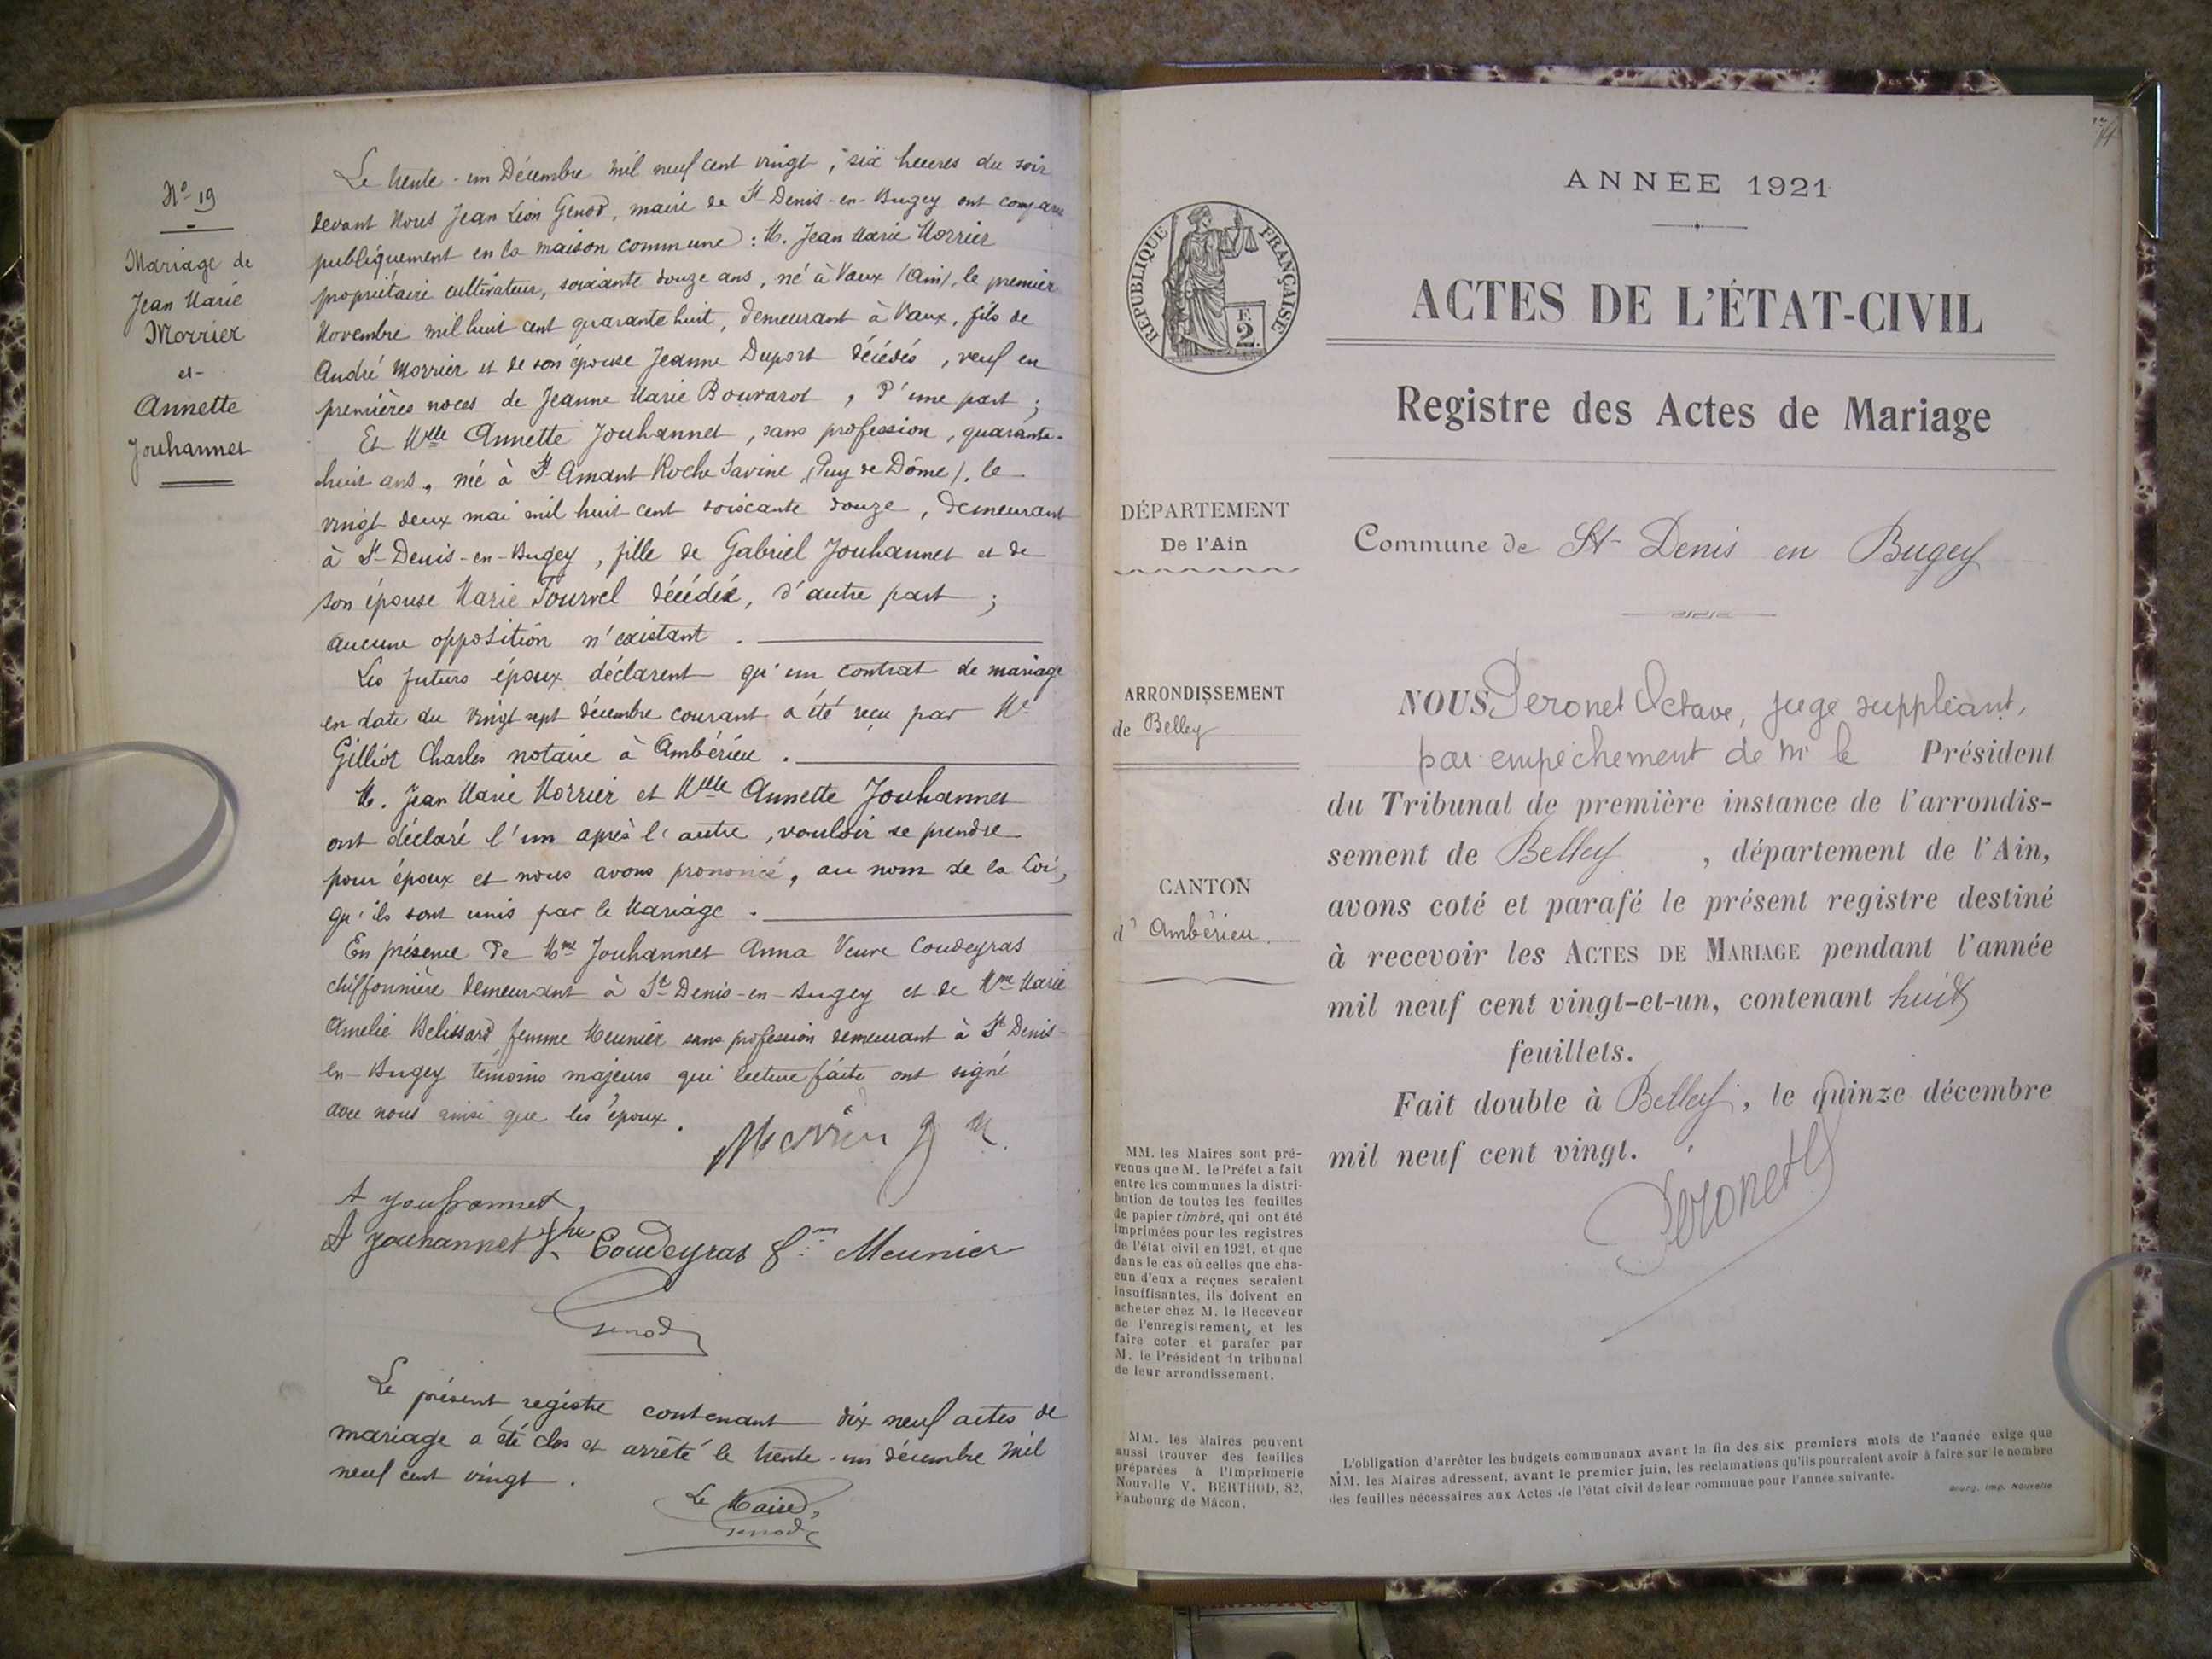 Nº 19
Mariage de
Jean Marie
Morrier
et
Annette
Jouhannet
Le trente-un Décembre mil neuf cent vingt, six heures du soir
devant Nous Jean Léon Genod, maire de St Denis-en-Bugey ont comparu
publiquement en la maison commune : M. Jean Marie Morrier
propriétaire cultivateur, soixante douze ans, né à Vaux (Ain), le premier
Novembre mil huit cent quarante huit, demeurant à Vaux, fils de
André Morrier et de son épouse Jeanne Duport décédés, veuf en
premières noces de Jeanne Marie Bouvarot, d'une part ;
Et Mlle Annette Jouhannet, sans profession, quarante-
huit ans, née à St Amant Roche Savine (Puy de Dôme), le
vingt deux mai mil huit cent soixante douze, demeurant
à St Denis-en-Bugey, fille de Gabriel Jouhannet et de
son épouse Marie Tourvel décédée, d'autre part ;
aucune opposition n'existant .
Les futurs époux déclarent qu'un contrat de mariage
en date du vingt sept décembre courant a été reçu par Me
Gilliot Charles notaire à Ambérieu .
M. Jean Marie Morrier et Mlle Annette Jouhannet
ont déclaré l'un après l'autre, vouloir se prendre
pour époux et nous avons prononcé, au nom de la Loi,
qu'ils sont unis par le Mariage .
En présence de Mme Jouhannet Anna Veuve Coudeyras
chiffonnière demeurant à St Denis-en-Bugey et de Mme Marie
Amelie Belissard femme Meunier sans profession demeurant à St Denis-
en-Bugey témoins majeurs qui lecture faite ont signé
avec nous ainsi que les époux .
Morrier J M
A Jouhannet
A Jouhannet Vve Coudeyras fme Meunier
Genod
Le présent registre contenant dix neuf actes de
mariage a été clos et arrêté le trente-un décembre mil
neuf cent vingt .
Le Maire,
Genod
ANNÉE 1921
RÉPUBLIQUE FRANÇAISE
2
ACTES DE L'ÉTAT-CIVIL
Registre des Actes de Mariage
DÉPARTEMENT
De l'Ain
Commune de St Denis en Bugey
ARRONDISSEMENT
de Belley
CANTON
d' Ambérieu
NOUS Peronet Octave, juge suppléant,
par empêchement de Mr le Président
du Tribunal de première instance de l'arrondis-
sement de Belley , département de l'Ain,
avons coté et parafé le présent registre destiné
à recevoir les ACTES DE MARIAGE pendant l'année
mil neuf cent vingt-et-un, contenant huit
feuillets.
Fait double à Belley, le quinze décembre
mil neuf cent vingt.
Peronet
MM. les Maires sont pré-
venus que M. le Préfet a fait
entre les communes la distri-
bution de toutes les feuilles
de papier timbré, qui ont été
imprimées pour les registres
de l'état civil en 1921, et que
dans le cas où celles que cha-
cun d'eux a reçues seraient
insuffisantes, ils doivent en
acheter chez M. le Receveur
de l'enregistrement, et les
faire coter et parafer par
M. le Président du tribunal
de leur arrondissement.
MM. les Maires peuvent
aussi trouver des feuilles
préparées à l'Imprimerie
Nouvelle V. BERTHOD, 82,
Faubourg de Mâcon.
L'obligation d'arrêter les budgets communaux avant la fin des six premiers mois de l'année exige que
MM. les Maires adressent, avant le premier juin, les réclamations qu'ils pourraient avoir à faire sur le nombre
des feuilles nécessaires aux Actes de l'état civil de leur commune pour l'année suivante.
Bourg, Imp. Nouvelle